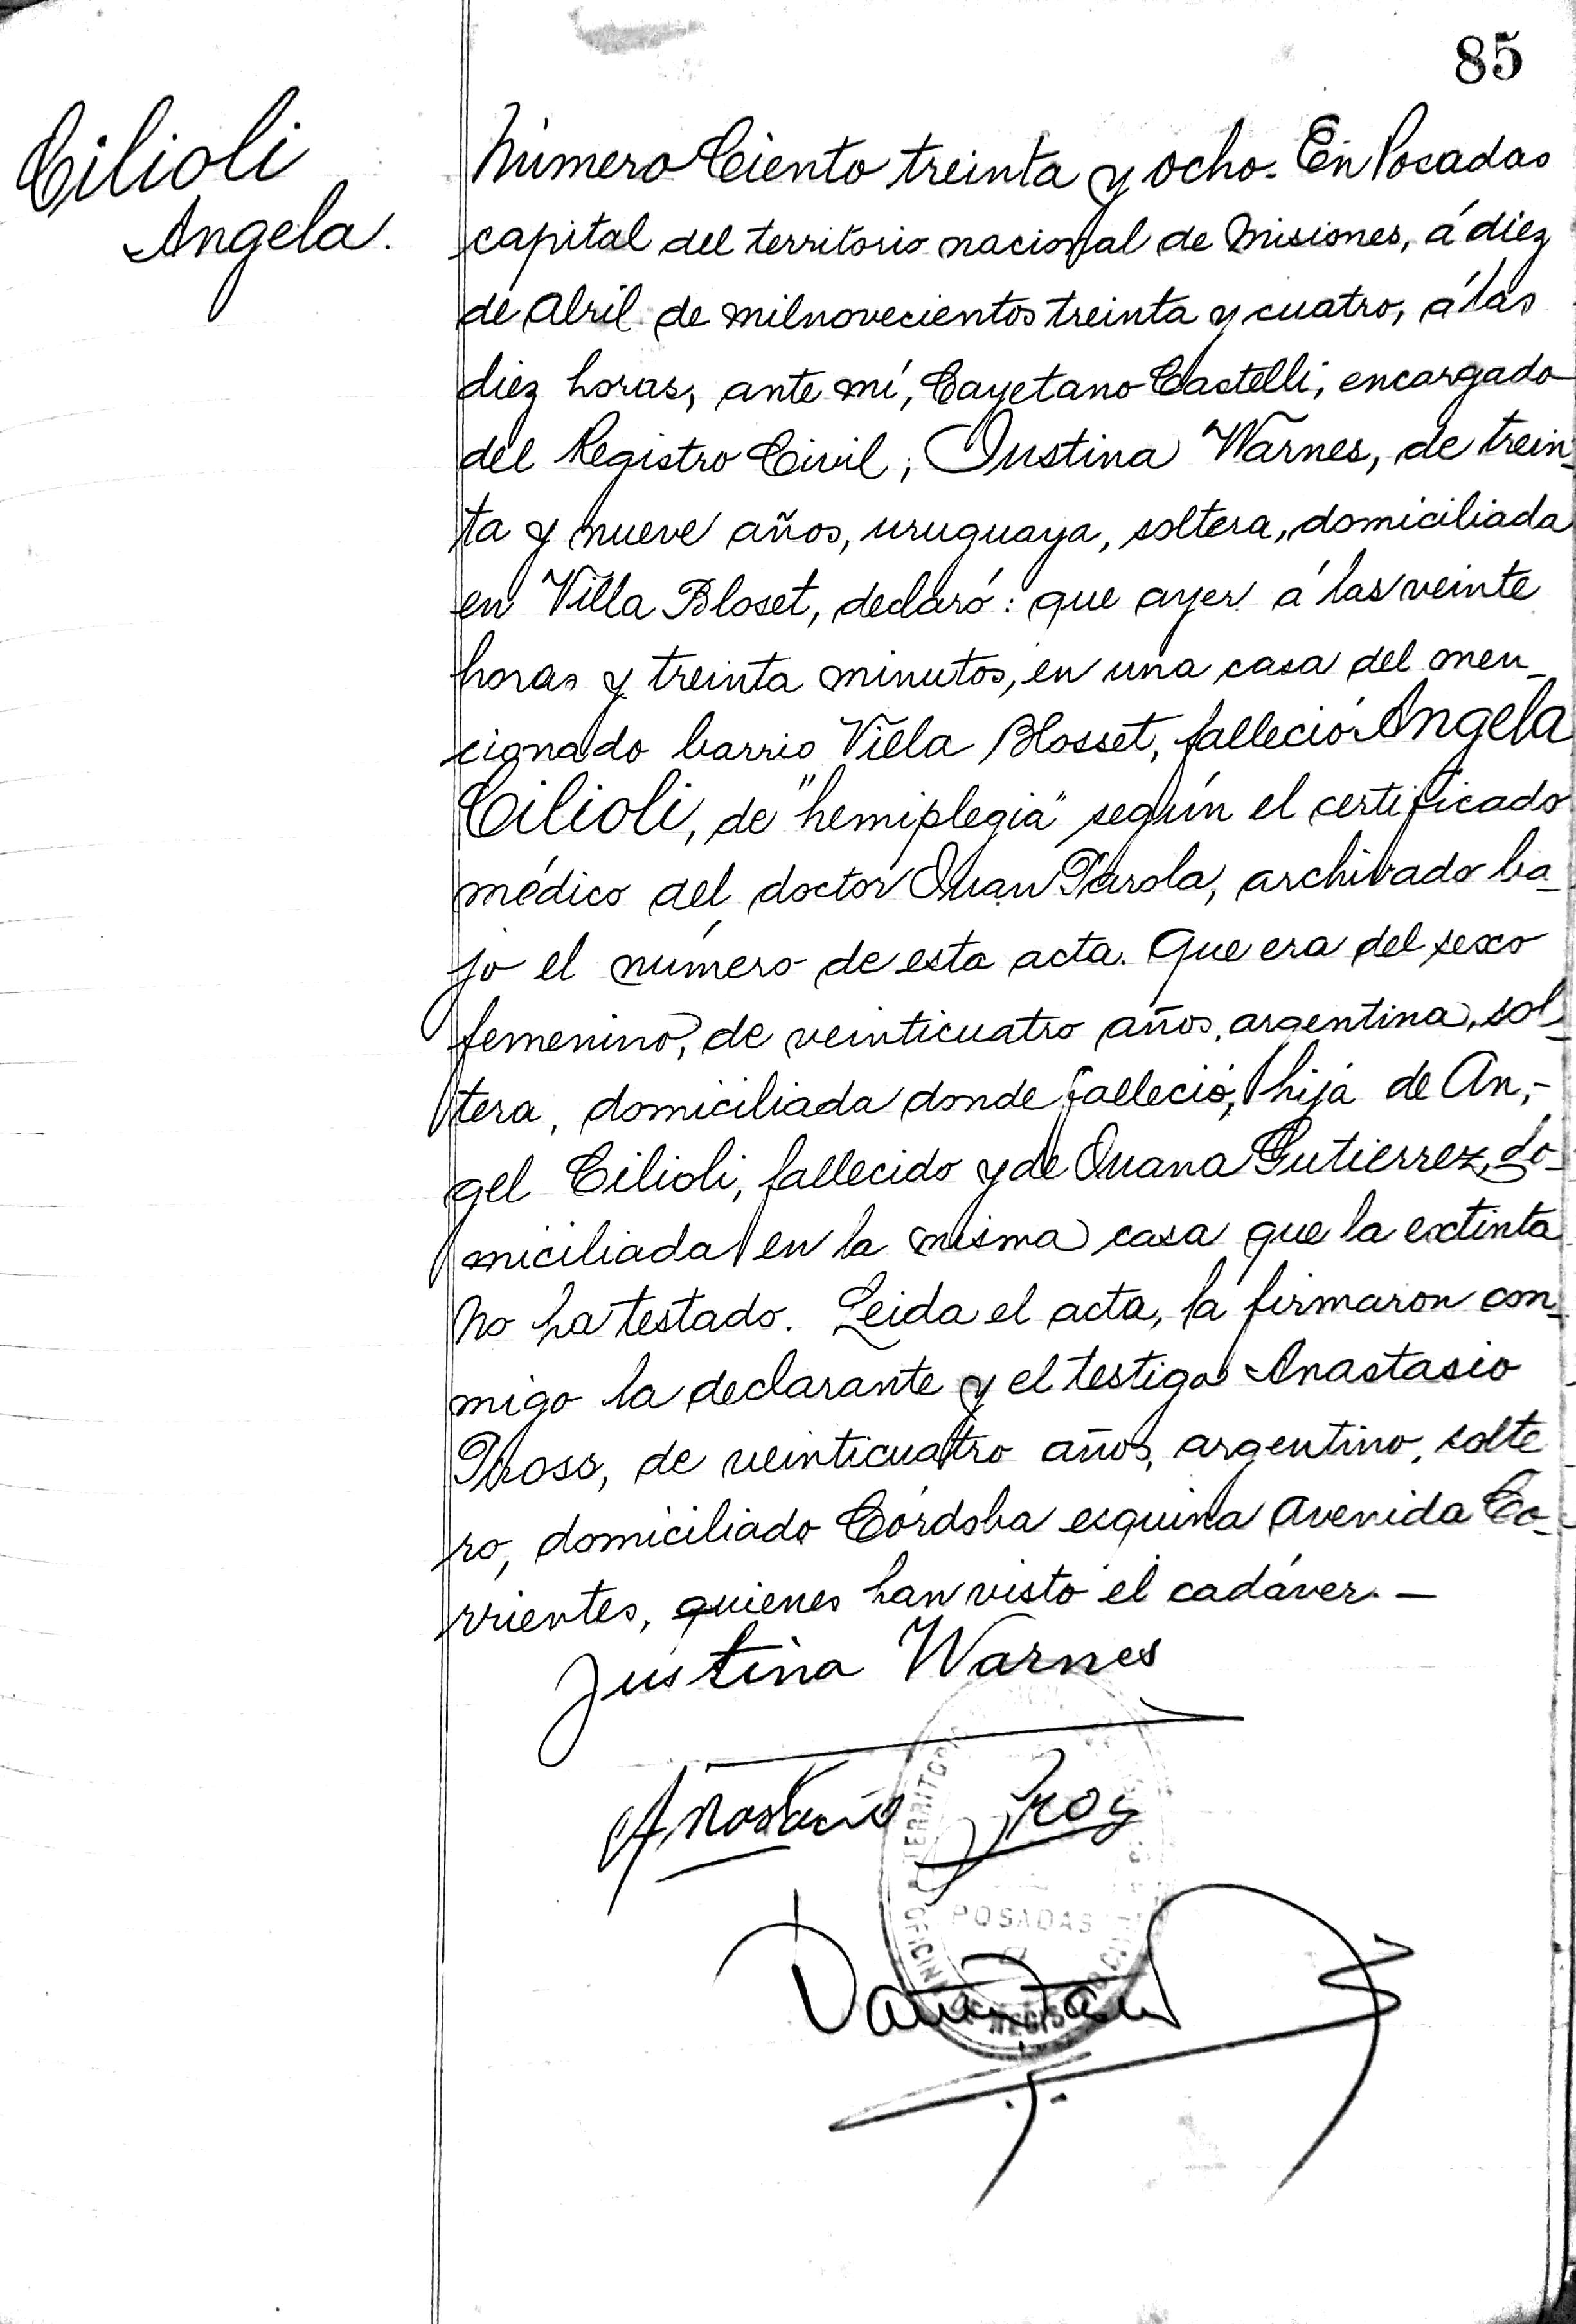 85
Cilioli
Angela.
Número Ciento treinta y ocho. En Posadas
capital del territorio nacional de Misiones, á diez
de Abril de milnovecientos treinta y cuatro, á las
diez horas, ante mí, Cayetano Castelli, encargado
del Registro Civil, Justina Warnes, de trein-
ta y nueve años, uruguaya, soltera, domiciliada
en Villa Bloset, declaró: que ayer á las veinte
horas y treinta minutos, en una casa del men-
cionado barrio Villa Blosset, falleció Angela
Cilioli, de "hemiplegia" según el certificado
médico del doctor Juan Parola, archivado ba-
jo el número de esta acta. Que era del sexo
femenino, de veinticuatro años, argentina, sol-
tera, domiciliada donde falleció, hija de An-
gel Cilioli, fallecido y de Juana Gutierrez, do-
miciliada en la misma casa que la extinta
No ha testado. Leida el acta, la firmaron con-
migo la declarante y el testigo Anastasio
de veinticuatro años, argentino, solte
ro, domiciliado Córdoba esquina Avenida Co-
rrientes, quienes han visto el cadáver. —
Justina Warnes
POSADAS